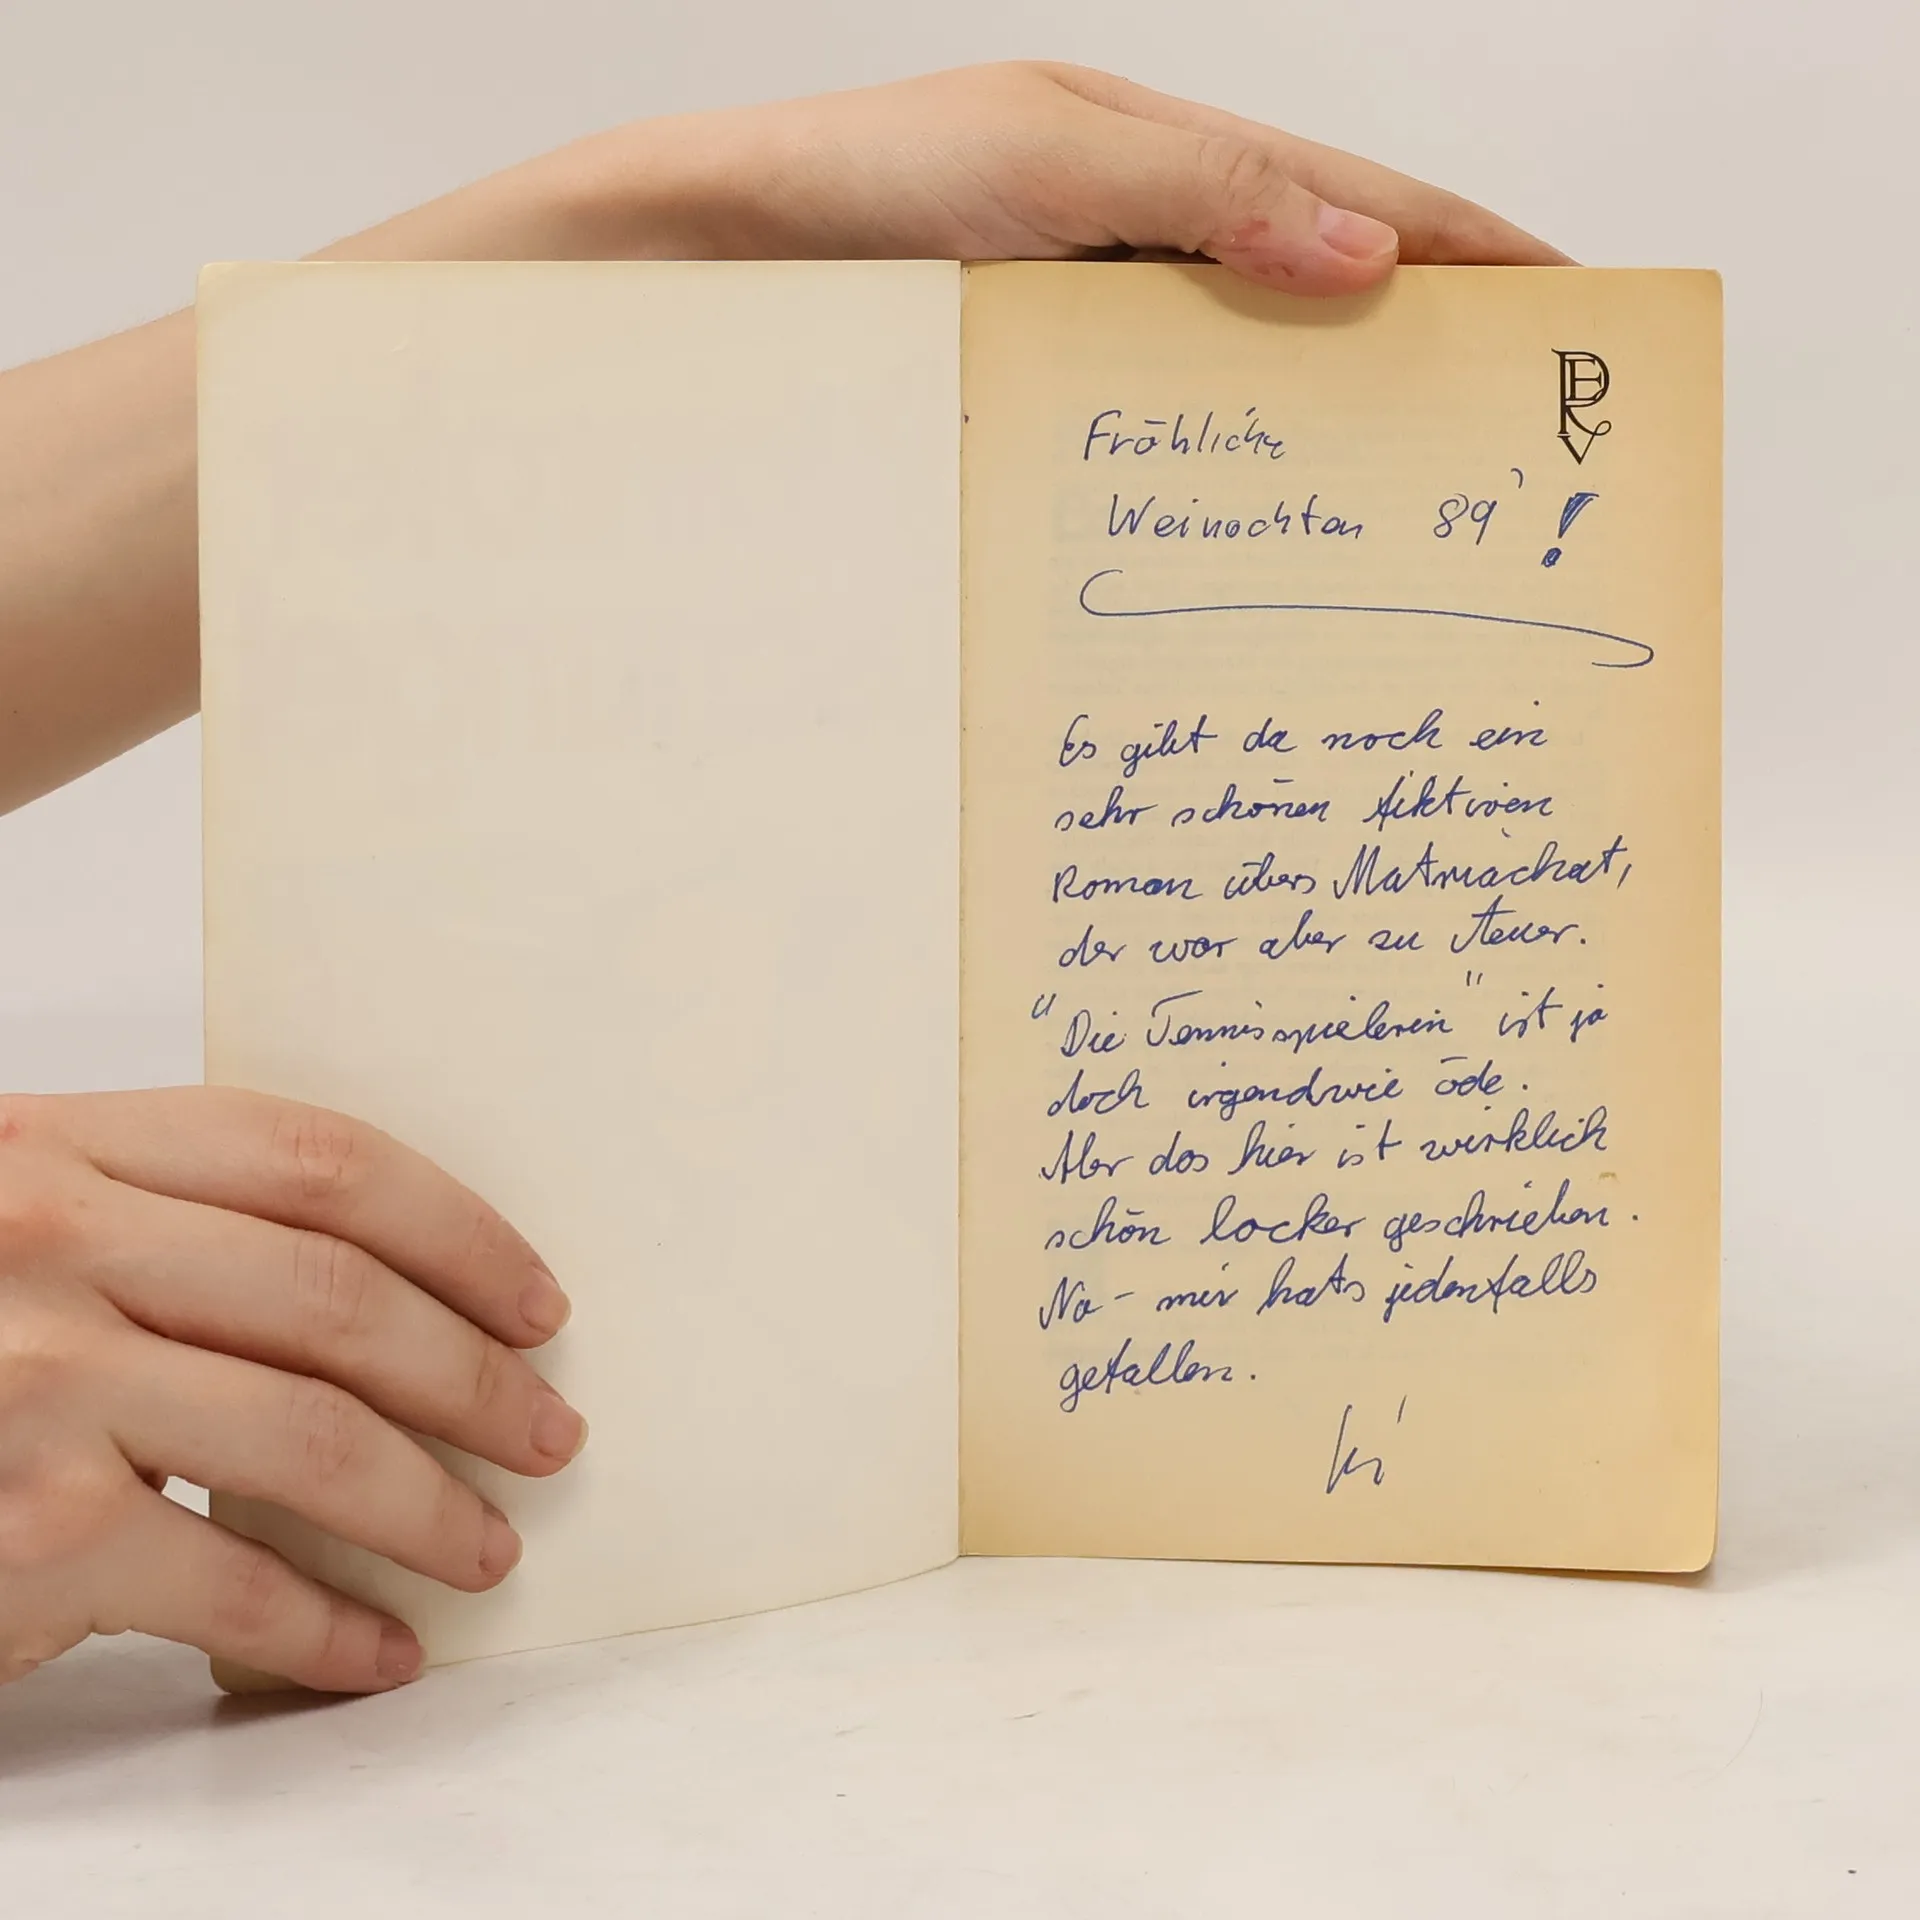 Fröhliche
Weinachten 89' !
Es gibt da noch ein
sehr schönen fiktiven
Roman übers Matriachat,
der war aber zu teuer.
"Die Tennisspielerin" ist ja
doch irgendwie öde.
Aber das hier ist wirklich
schön locker geschrieben.
Na - mir hats jedenfalls
gefallen.